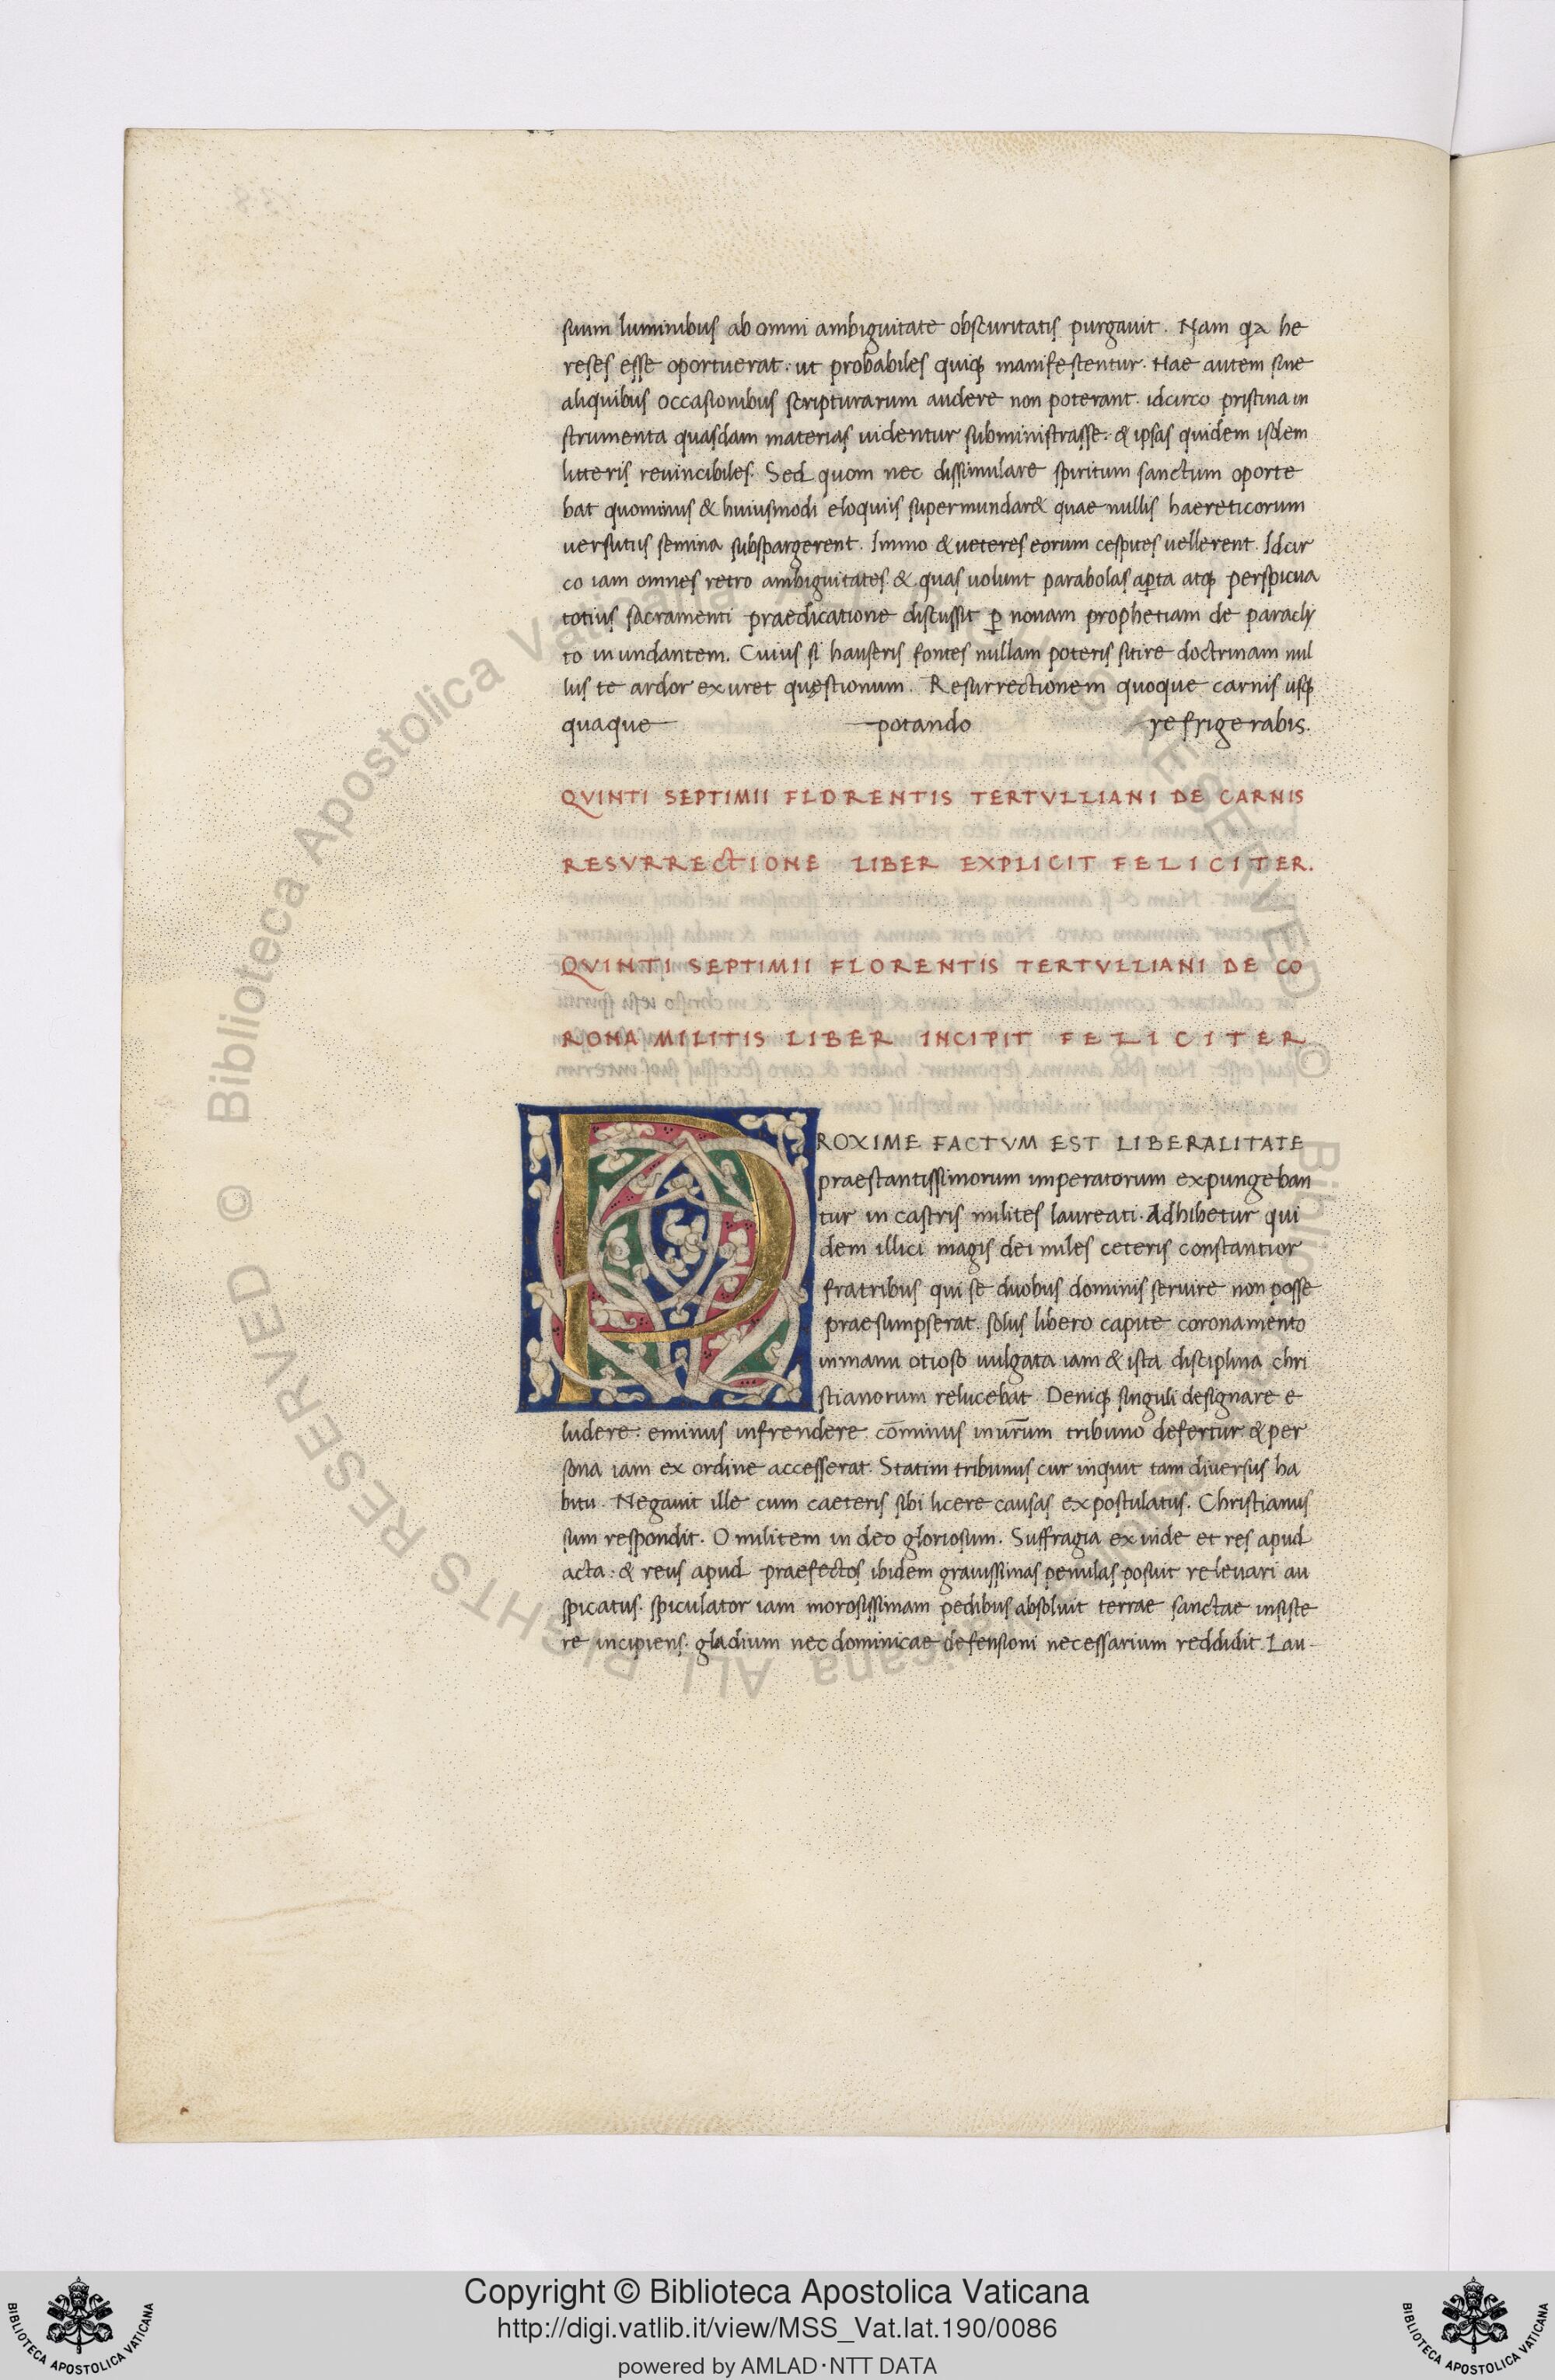 suum luminibus ab omni ambiguitate obscuritatis purgauit. Nam qa he
reses esse oportuerat. ut probabiles quiq; manifestentur. Hae autem sine
aliquibus occasionibus scripturarum audere non poterant. idcirco pristina in
strumenta quasdam materias uidentur subministrasse. & ipsas quidem isdem
litteris reuincibiles. Sed quom nec dissimulare spiritum sanctum oporte
bat quominus & huiusmodi eloquiis supermundar& quae nullis haereticorum
uersutiis semina subspargerent. Immo & ueteres eorum cespites uellerent. Idcir
co iam omnes retro ambiguitates & quas uolunt parabolas apta atq; perspicua
totius sacramenti praedicatione discussit p nouam prophetiam de paracly
to inundantem. Cuius si hauseris fontes nullam poteris sitire doctrinam nul
lus te ardor exuret quęstionum. Resurrectionem quoque carnis usq;
quaque potando refrigerabis.
QVINTI SEPTIMII FLORENTIS TERTVLLIANI DE CARNIS
RESVRRECTIONE LIBER EXPLICIT FELICITER.
QVINTI SEPTIMII FLORENTIS TERTVLLIANI DE CO
RONA MILITIS LIBER INCIPIT FELICITER
PROXIME FACTVM EST LIBERALITATE
praestantissimorum imperatorum expungeban
tur in castris milites laureati. Adhibetur qui
dem illici magis dei miles ceteris constantior
fratribus qui se duobus dominis seruire non posse
praesumpserat. solus libero capite coronamento
in manu otioso uulgata iam & ista disciplina chri
stianorum relucebat. Deniq; singuli designare e
ludere. eminus infrendere cōminus murm̄ tribuno defertur & per
sona iam ex ordine accesserat. Statim tribunus cur inquit tam diuersus ha
bitu. Negauit ille cum caeteris sibi licere causas expostulatus. Christianus
sum respondit. O militem in deo gloriosum. Suffragia exinde et res apud
acta. & reus apud praefectos ibidem grauissimas penulas posuit releuari au
spicatus. spiculator iam morosissimam pedibus absoluit terrae sanctae insiste
re incipiens. gladium nec dominicae defensioni necessarium reddidit. Lau-
© Biblioteca Apostolica Vaticana ALL RIGHTS RESERVED
Copyright © Biblioteca Apostolica Vaticana
http://digi.vatlib.it/view/MSS_Vat.lat.190/0086
powered by AMLAD·NTT DATA
BIBLIOTECA APOSTOLICA VATICANA
BIBLIOTECA APOSTOLICA VATICANA